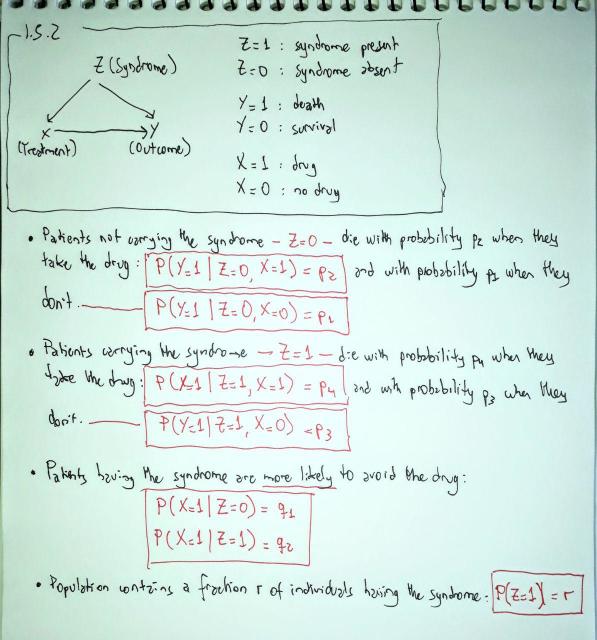 1.5.2
Z (Syndrome)
X
Y
(Treatment)
(Outcome)
Z=1 : syndrome present
Z=0 : syndrome absent
Y=1 : death
Y=0 : survival
X=1 : drug
X=0 : no drug
• Patients not carrying the syndrome – Z=0 – die with probability p2 when they
take the drug : P(Y=1 | Z=0, X=1) = p2 and with probability p1 when they
don't. P(Y=1 | Z=0, X=0) = p1
• Patients carrying the syndrome – Z=1 – die with probability p4 when they
take the drug: P(X=1 | Z=1, X=1) = p4 and with probability p3 when they
don't. P(Y=1 | Z=1, X=0) = p3
• Patients having the syndrome are more likely to avoid the drug:
P(X=1 | Z=0) = q1
P(X=1 | Z=1) = q2
• Population contains a fraction r of individuals having the syndrome: P(Z=1) = r